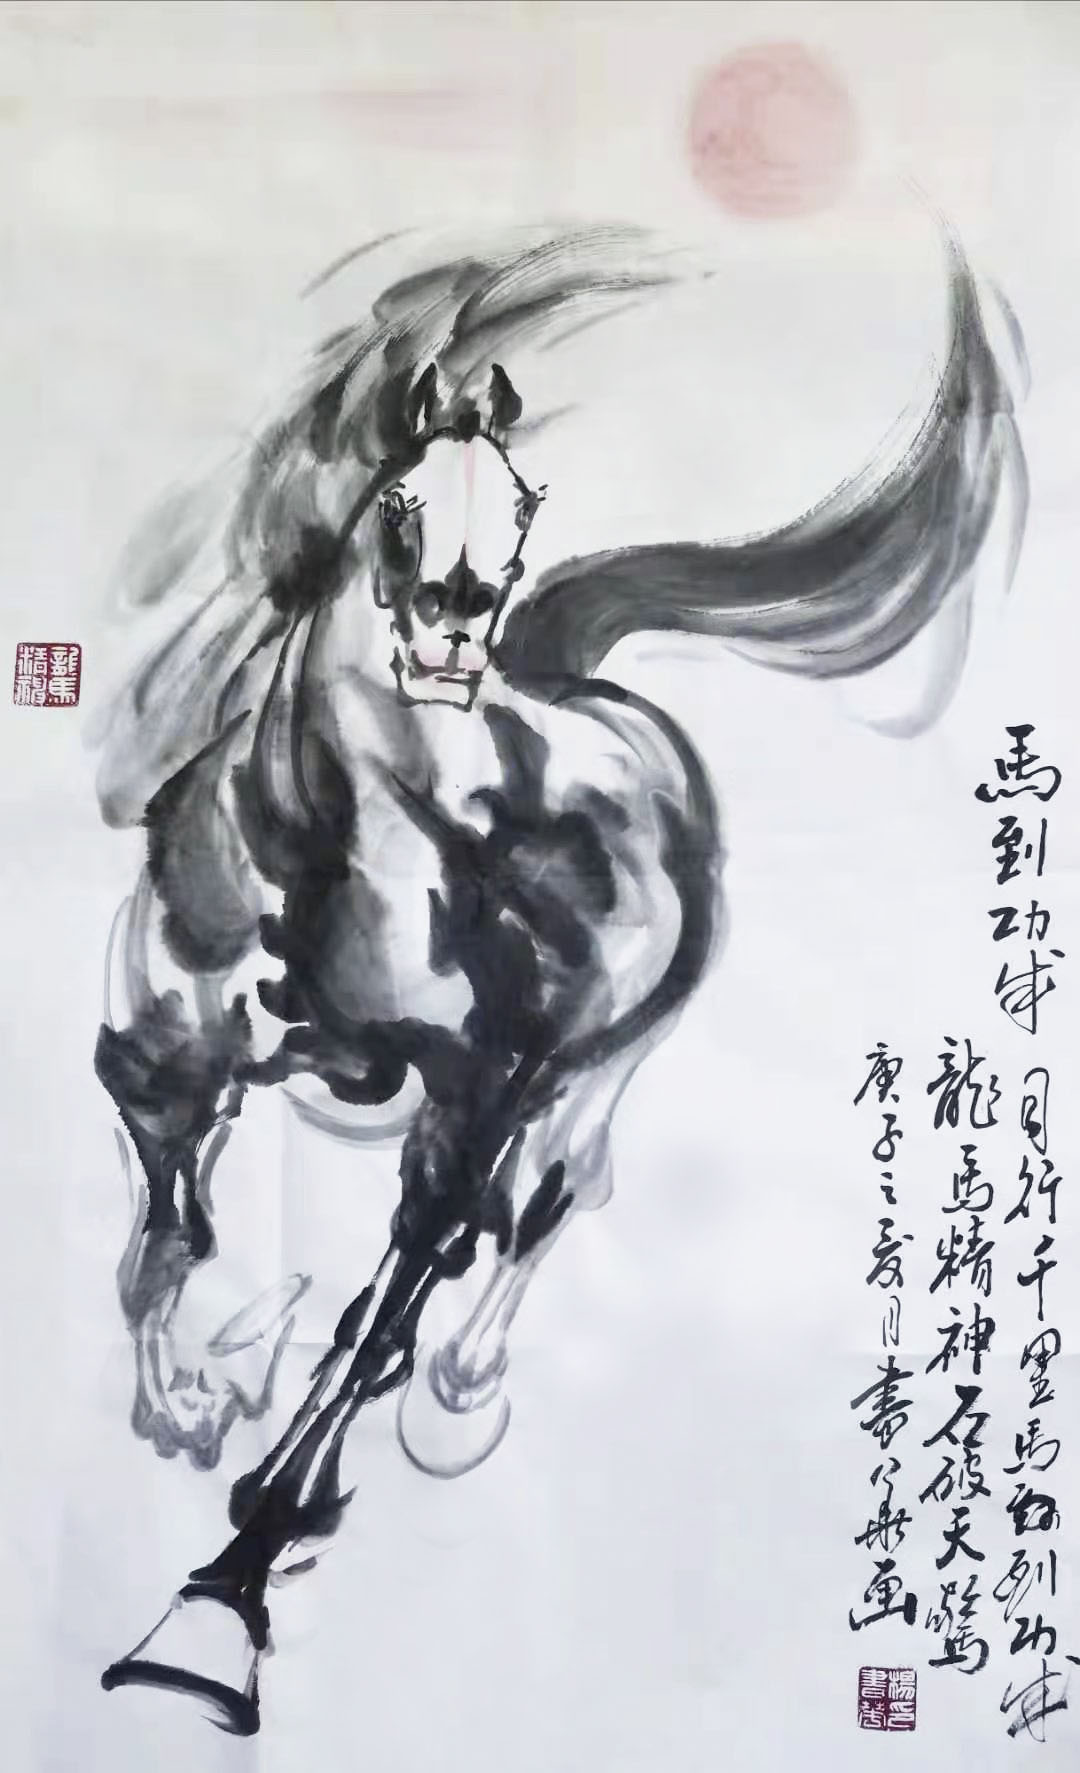 馬到功成
日行千里馬到功成
龍馬精神石破天驚
庚子之夏月書画
龍馬精神